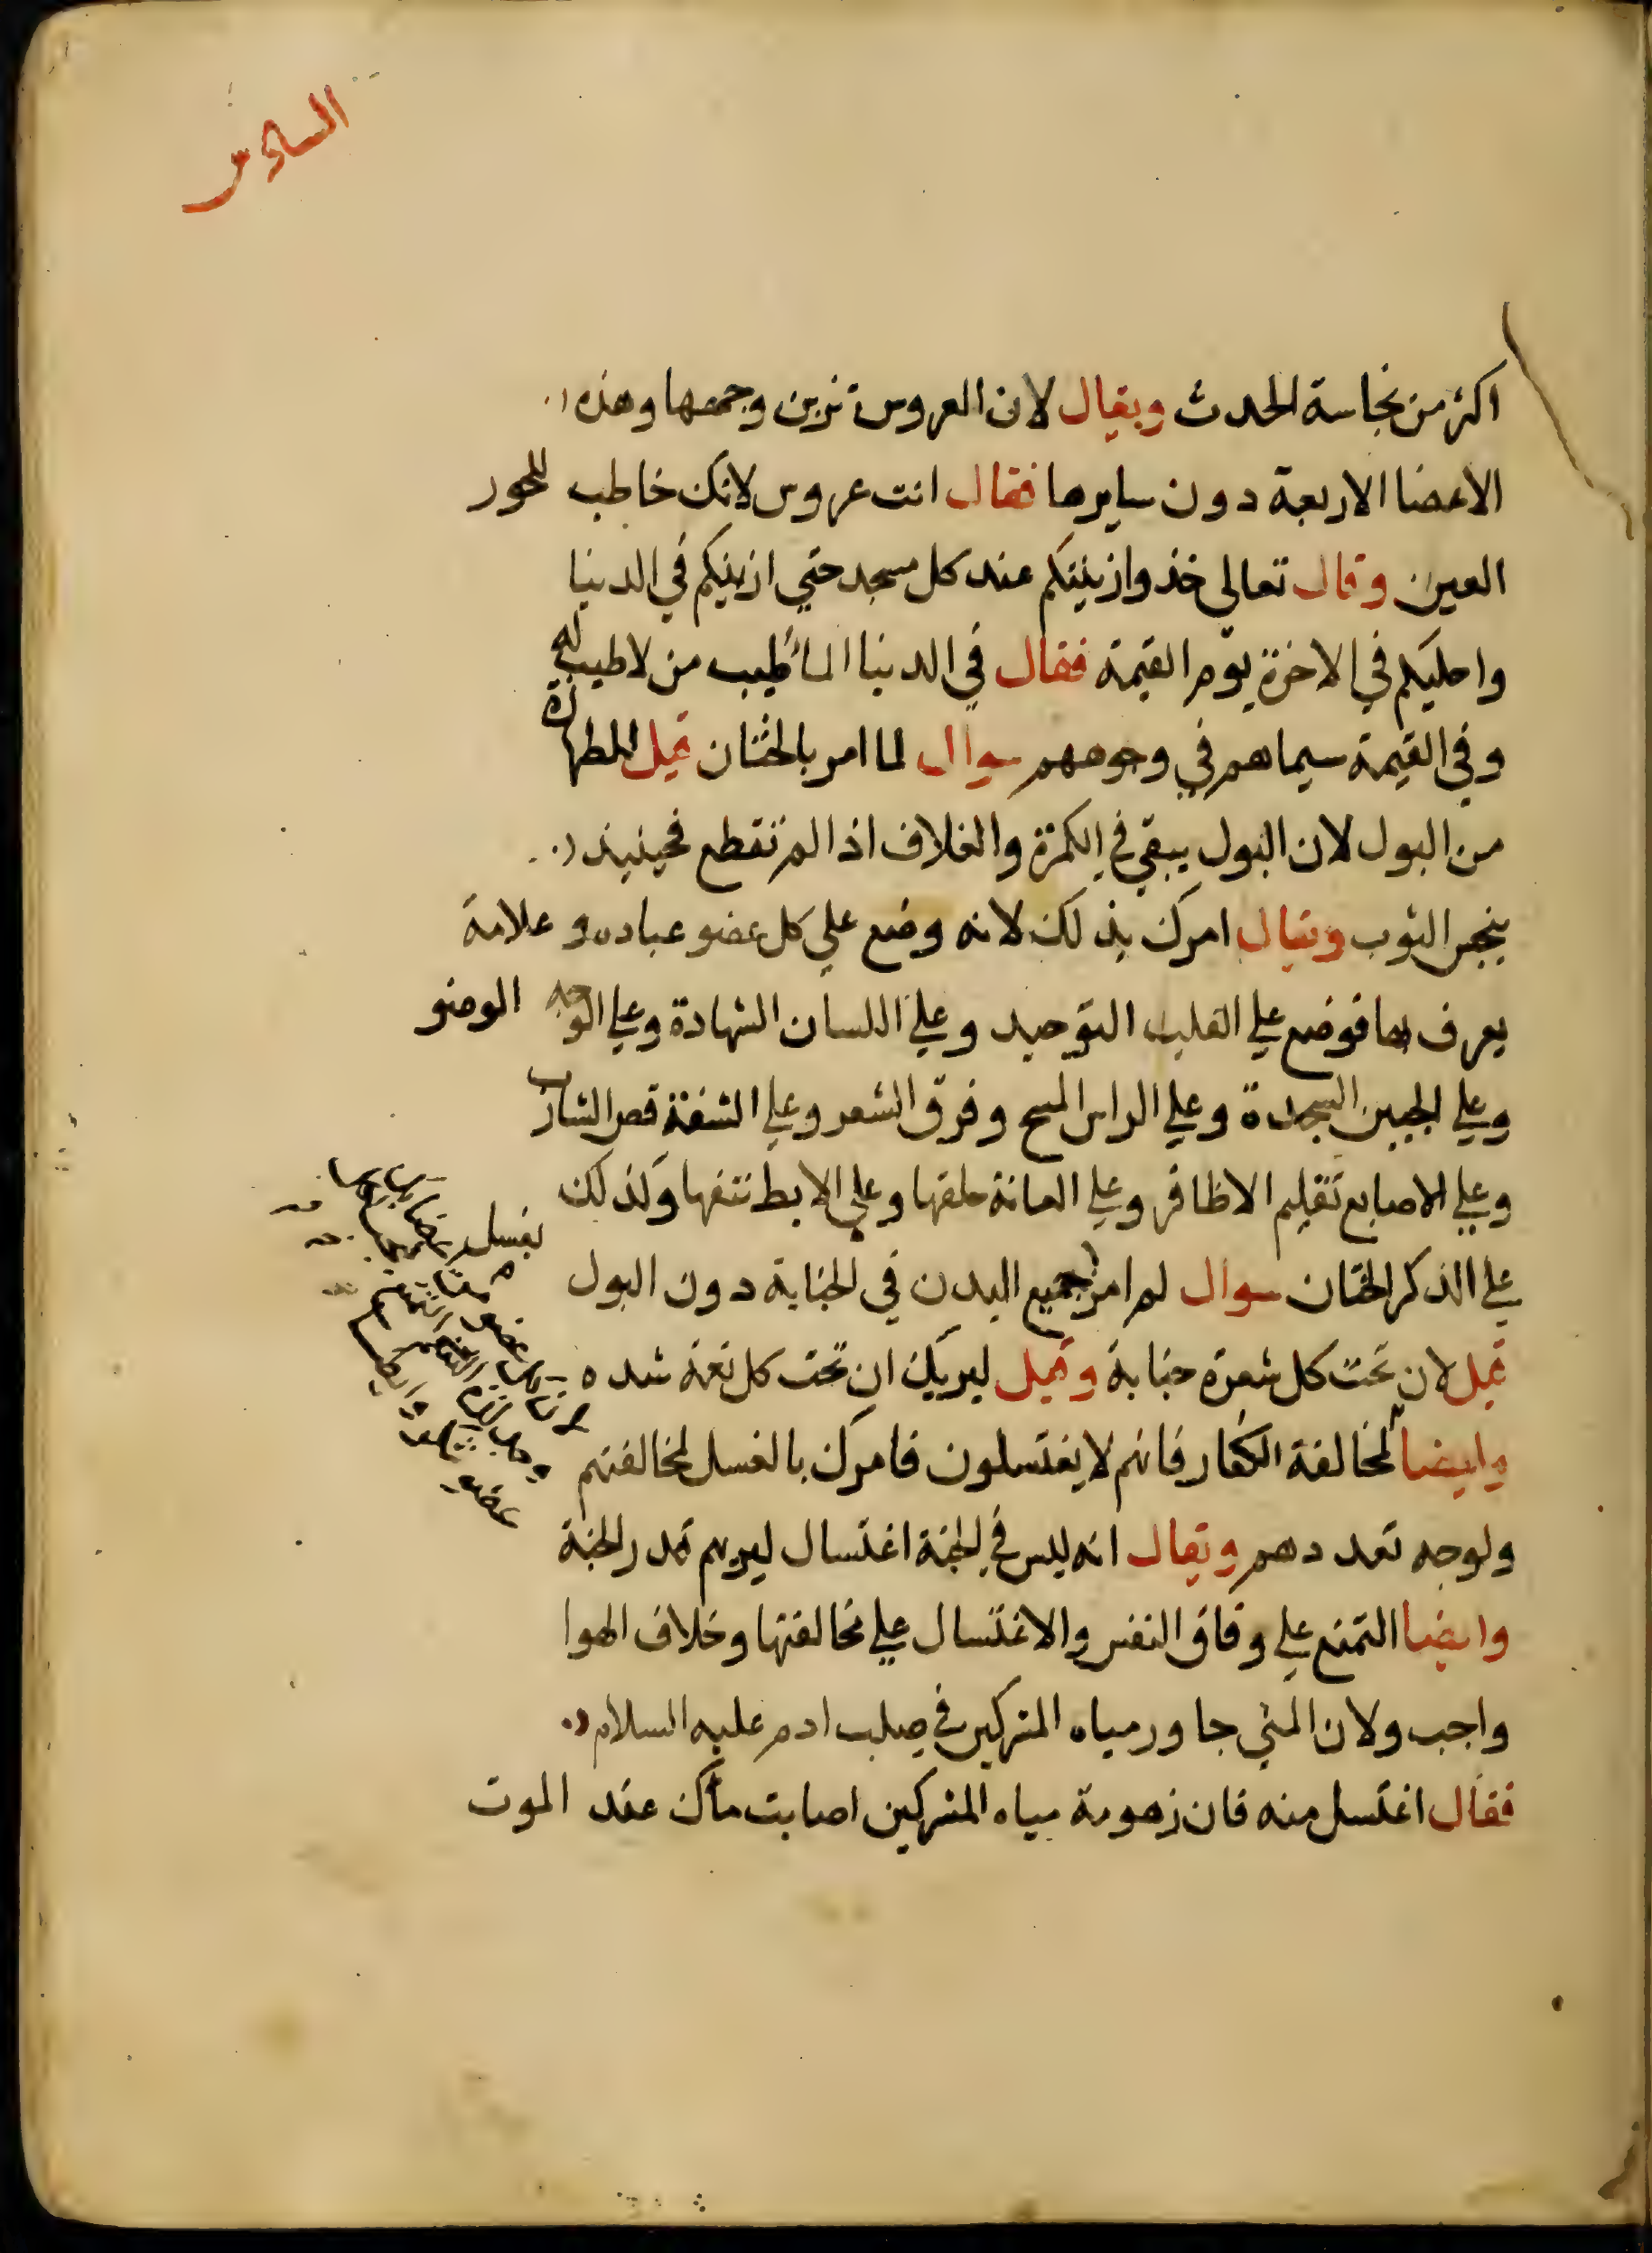 السادس
اكثر من نجاسة الحدث ويقال لان العروس تزين وجهها وهذه
الاعضا الاربعة دون سايرها فقال انت عروس لانك خاطب للحور
العين وقال تعالى خذوا زينتكم عند كل مسجد حتي ازينكم في الدنيا
واحليكم في الاخرة يوم القيمة فقال في الدنيا الما طيب من لا طيب له
وفي القيمة سيماهم في وجوههم سوال لما امر بالختان قيل للطهارة
من البول لان البول يبقي في الكمرة والغلاف اذا لم تقطع فحينيذ
ينجس الثوب ويقال امرك بذلك لانه وضع علي كل عضو عباده و علامة
يعرف بها فوضع علي القلب التوحيد وعلي اللسان الشهادة وعلي الوجه الوضو
وعلي الجبين السجدة وعلي الراس المسح وفرق الشعر وعلي الشفة قص الشارب
وعلي الاصابع تقليم الاظافر وعلي العانة حلقها وعلي الابط نتفها وكذلك
علي الذكر الختان سوال لم امر بجميع البدن في الجنابة دون البول
قيل لان تحت كل شعرة جنابة وقيل ليريك ان تحت كل نعمة شده
وايضا لمخالفة الكفار فانهم لا يغتسلون فامرك بالغسل لمخالفتهم
ولوجه تعددهم ويقال انه ليس في الجنة اغتسال ليريهم قدر الجنة
وايضا التمتع علي وفاق النفس والاغتسال علي مخالفتها وخلاف الهوا
واجب ولان المني جاور مياه المشركين في صلب ادم عليه السلام
فقال اغتسل منه فان زهومة مياه المشركين اصابت ماك عند الموت
بغسل
عضو